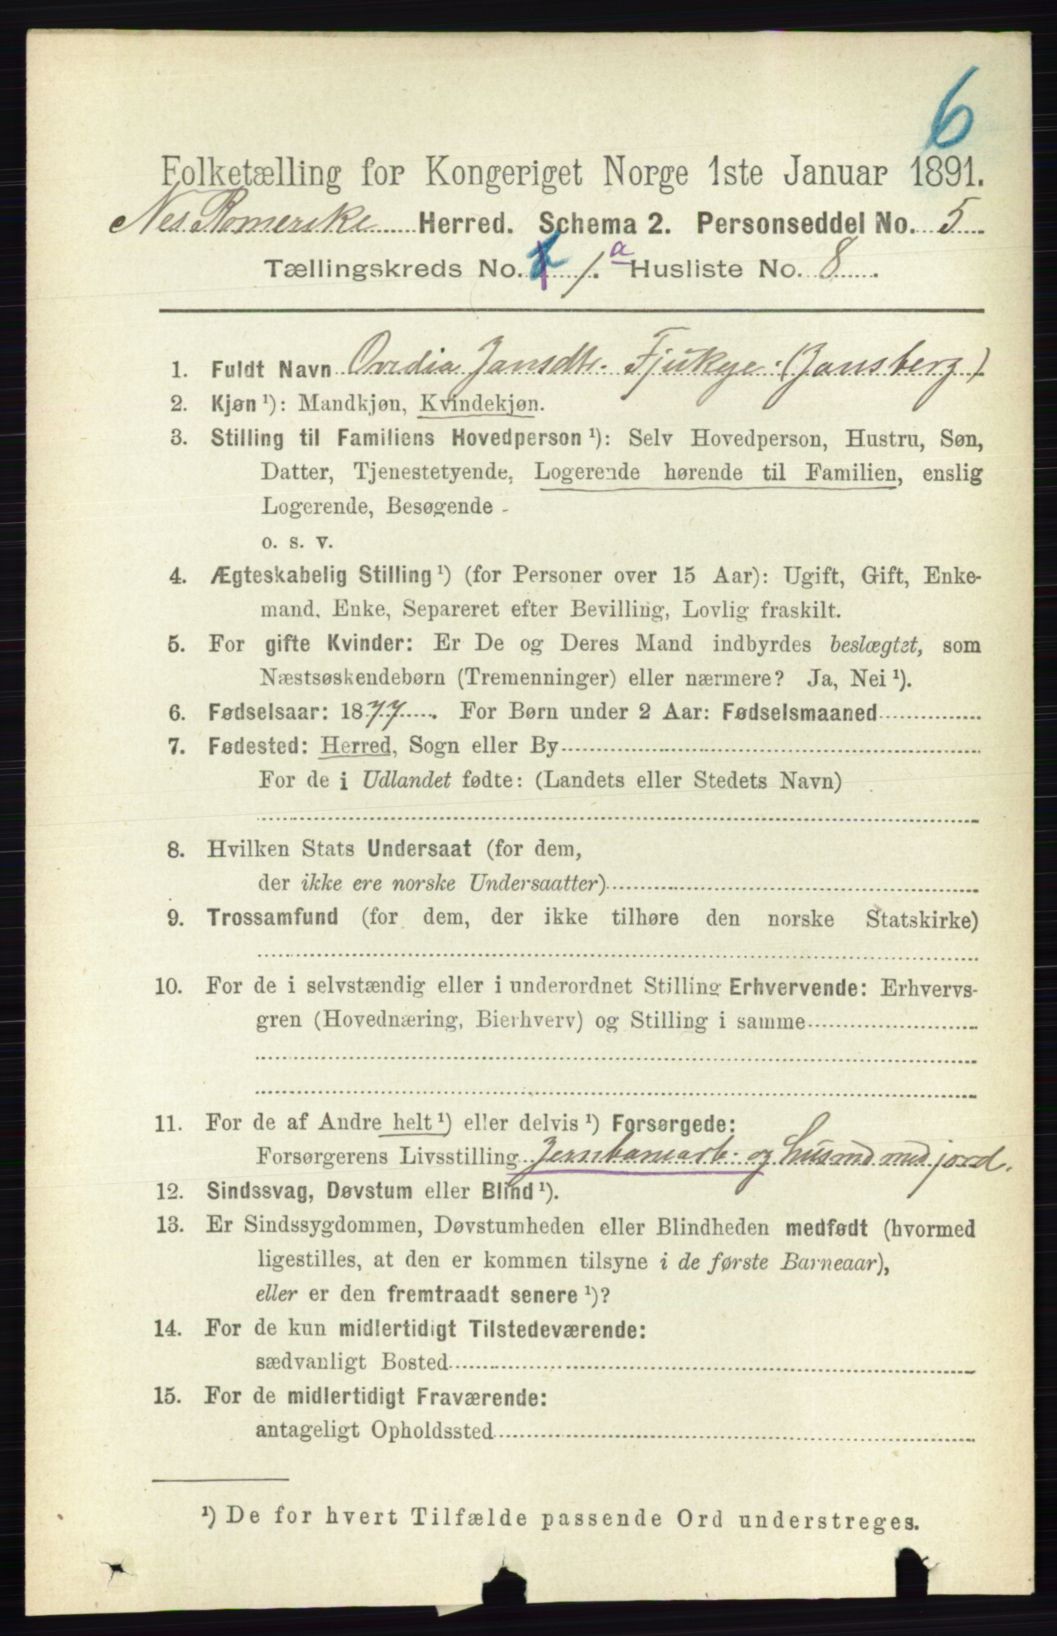 6
Folketælling for Kongeriget Norge 1ste Januar 1891.
Nes Romerike Herred. Schema 2. Personseddel No. 5
Tællingskreds No. 1.a Husliste No. 8
1. Fuldt Navn Ovedia Jansdtr. Fjukye. (Jansberg)
2. Kjøn ¹): Mandkjøn, Kvindekjøn.
3. Stilling til Familiens Hovedperson ¹): Selv Hovedperson, Hustru, Søn,
Datter, Tjenestetyende, Logerende hørende til Familien, enslig
Logerende, Besøgende -
o. s. v.
4. Ægteskabelig Stilling ¹) (for Personer over 15 Aar): Ugift, Gift, Enke-
mand, Enke, Separeret efter Bevilling, Lovlig fraskilt.
5. For gifte Kvinder: Er De og Deres Mand indbyrdes beslægtet, som
Næstsøskendebørn (Tremenninger) eller nærmere? Ja, Nei ¹).
6. Fødselsaar: 1877. For Børn under 2 Aar: Fødselsmaaned
7. Fødested: Herred, Sogn eller By
For de i Udlandet fødte: (Landets eller Stedets Navn)
8. Hvilken Stats Undersaat (for dem,
der ikke ere norske Undersaatter)
9. Trossamfund (for dem, der ikke tilhøre den norske Statskirke)
10. For de i selvstændig eller i underordnet Stilling Erhvervende: Erhvervs-
gren (Hovednæring, Bierhverv) og Stilling i samme
11. For de af Andre helt ¹) eller delvis ¹) Forsørgede:
Forsørgerens Livsstilling Jernbanearb. og husmd med jord.
12. Sindssvag, Døvstum eller Blind ¹).
13. Er Sindssygdommen, Døvstumheden eller Blindheden medfødt (hvormed
ligestilles, at den er kommen tilsyne i de første Barneaar),
eller er den fremtraadt senere ¹)?
14. For de kun midlertidigt Tilstedeværende:
sædvanligt Bosted
15. For de midlertidigt Fraværende:
antageligt Opholdssted
¹) De for hvert Tilfælde passende Ord understreges.